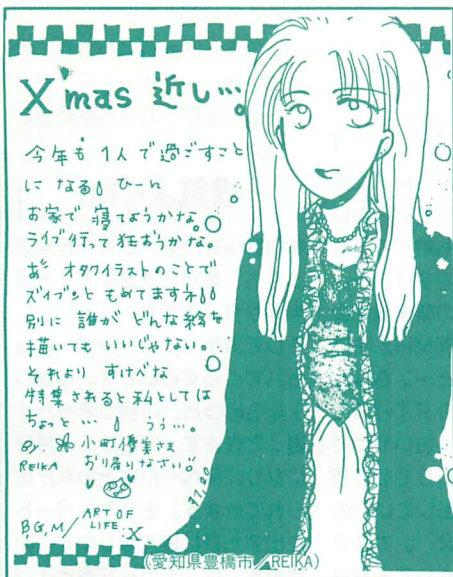 X'mas 近し…。
今年も 1人で過ごすこと
になる!! ひーん
お家で寝てようかな。
ライブ行って狂おうかな。
あ" オタクイラストのことで
ズイブンと もめてますネ!!
別に 誰が どんな絵を
描いても いいじゃない。
それより すけべな
特集されると私としては
ちょっと…!! うぅ…。
By. 小町優美さま
REIKA お帰りなさい!!
91.20
B,G,M/ ART OF LIFE. X
(愛知県豊橋市/REIKA)